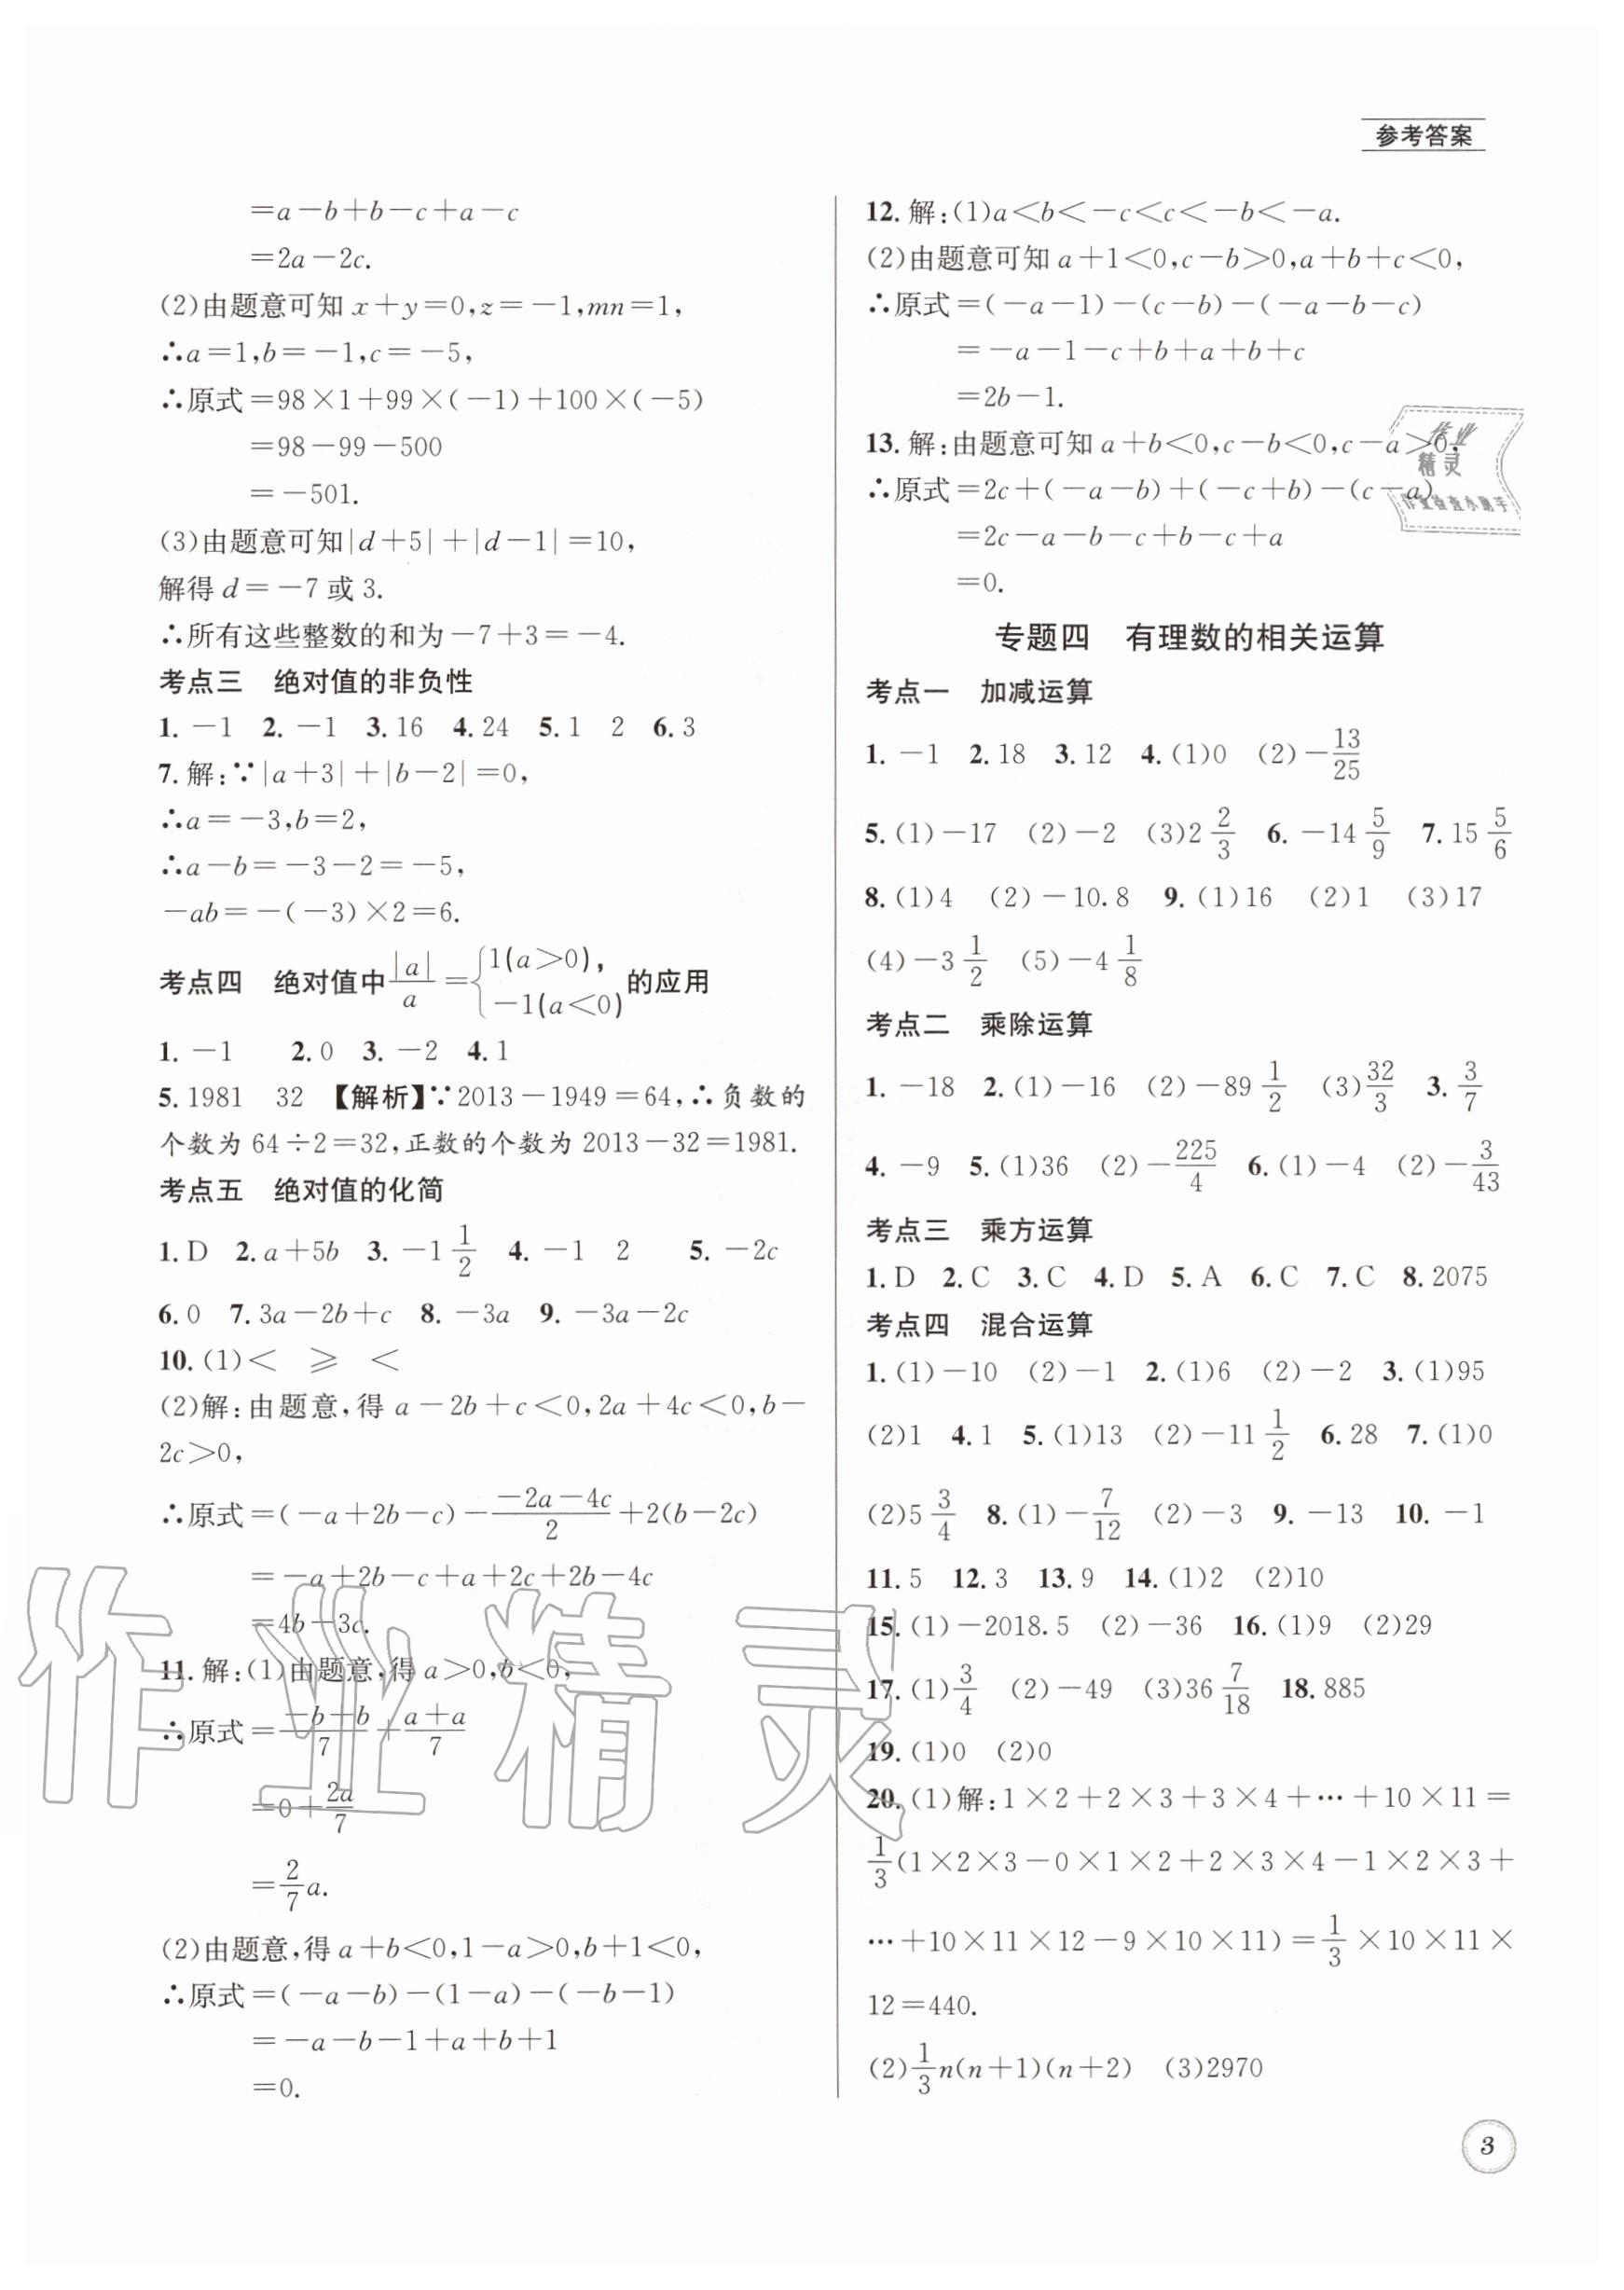 参考答案
=a-b+b-c+a-c
=2a-2c.
(2)由题意可知 x+y=0,z=-1,mn=1,
∴a=1,b=-1,c=-5,
∴原式=98×1+99×(-1)+100×(-5)
=98-99-500
=-501.
(3)由题意可知|d+5|+|d-1|=10,
解得 d=-7 或 3.
∴所有这些整数的和为-7+3=-4.
考点三 绝对值的非负性
1. -1 2. -1 3. 16 4. 24 5. 1 2 6. 3
7. 解:∵|a+3|+|b-2|=0,
∴a=-3,b=2,
∴a-b=-3-2=-5,
-ab=-(-3)×2=6.
考点四 绝对值中|a|/a={1(a>0), -1(a<0)的应用
1. -1 2. 0 3. -2 4. 1
5. 1981 32 【解析】∵2013-1949=64,∴负数的
个数为 64÷2=32,正数的个数为 2013-32=1981.
考点五 绝对值的化简
1. D 2. a+5b 3. -1 1/2 4. -1 2 5. -2c
6. 0 7. 3a-2b+c 8. -3a 9. -3a-2c
10. (1)< ⩾ <
(2)解:由题意,得 a-2b+c<0,2a+4c<0,b-
2c>0,
∴原式=(-a+2b-c)-(-2a-4c)/2+2(b-2c)
=-a+2b-c+a+2c+2b-4c
=4b-3c.
11. 解:(1)由题意,得 a>0,b<0,
∴原式=(-b+b)/7+(a+a)/7
=0+2a/7
=2/7a.
(2)由题意,得 a+b<0,1-a>0,b+1<0,
∴原式=(-a-b)-(1-a)-(-b-1)
=-a-b-1+a+b+1
=0.
12. 解:(1)a<b<-c<c<-b<-a.
(2)由题意可知 a+1<0,c-b>0,a+b+c<0,
∴原式=(-a-1)-(c-b)-(-a-b-c)
=-a-1-c+b+a+b+c
=2b-1.
13. 解:由题意可知 a+b<0,c-b<0,c-a>0,
∴原式=2c+(-a-b)+(-c+b)-(c-a)
=2c-a-b-c+b-c+a
=0.
专题四 有理数的相关运算
考点一 加减运算
1. -1 2. 18 3. 12 4. (1)0 (2)-13/25
5. (1)-17 (2)-2 (3)2 2/3 6. -14 5/9 7. 15 5/6
8. (1)4 (2)-10.8 9. (1)16 (2)1 (3)17
(4)-3 1/2 (5)-4 1/8
考点二 乘除运算
1. -18 2. (1)-16 (2)-89 1/2 (3)32/3 3. 3/7
4. -9 5. (1)36 (2)-225/4 6. (1)-4 (2)-3/43
考点三 乘方运算
1. D 2. C 3. C 4. D 5. A 6. C 7. C 8. 2075
考点四 混合运算
1. (1)-10 (2)-1 2. (1)6 (2)-2 3. (1)95
(2)1 4. 1 5. (1)13 (2)-11 1/2 6. 28 7. (1)0
(2)5 3/4 8. (1)-7/12 (2)-3 9. -13 10. -1
11. 5 12. 3 13. 9 14. (1)2 (2)10
15. (1)-2018.5 (2)-36 16. (1)9 (2)29
17. (1)3/4 (2)-49 (3)36 7/18 18. 885
19. (1)0 (2)0
20. (1)解:1×2+2×3+3×4+…+10×11=
1/3(1×2×3-0×1×2+2×3×4-1×2×3+
…+10×11×12-9×10×11)=1/3×10×11×
12=440.
(2)1/3n(n+1)(n+2) (3)2970
作业
精灵
作业检查小助手
作业精灵
3